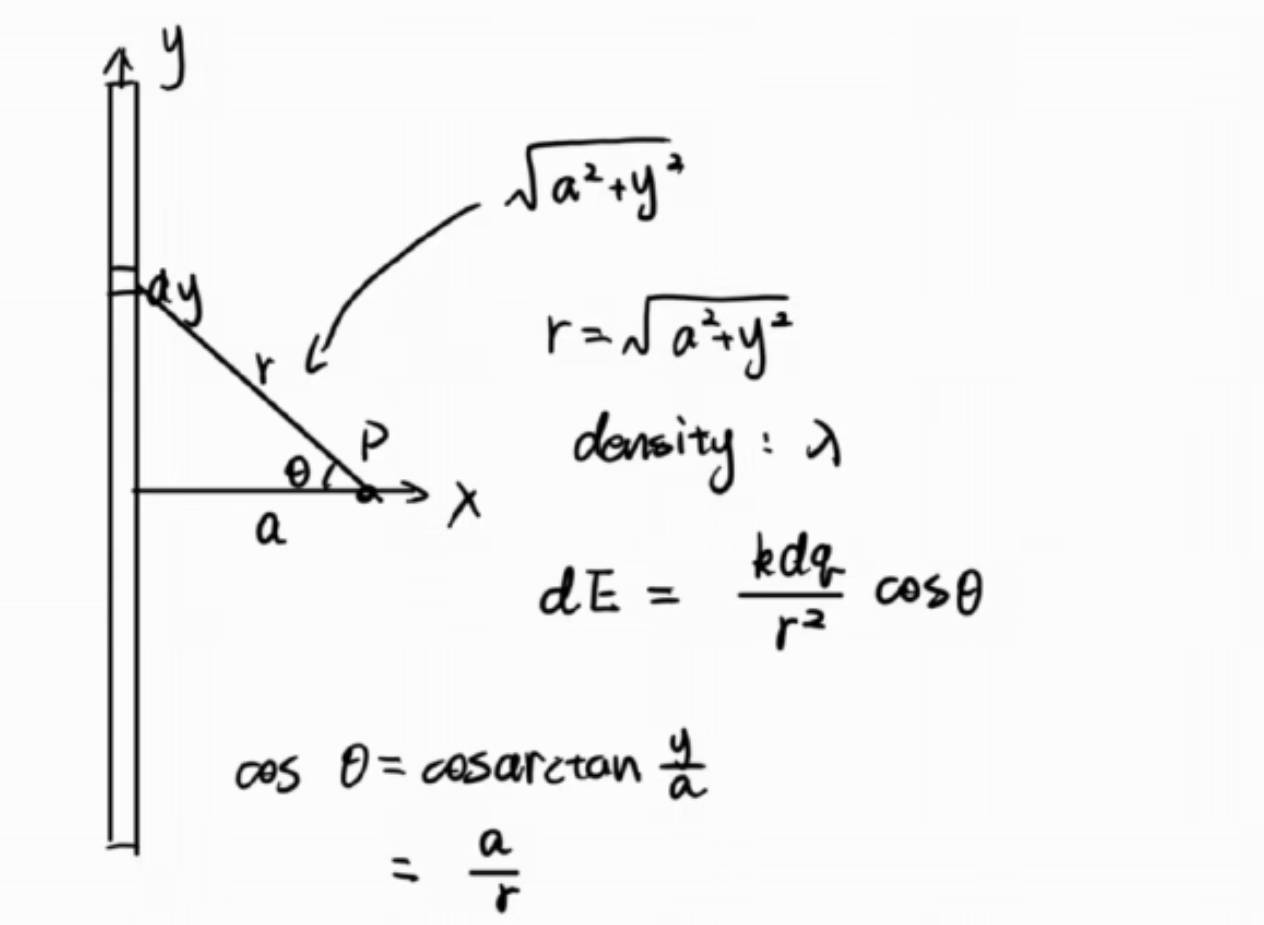 y
√(a²+y²)
dy
r
r=√(a²+y²)
P
density: λ
θ
x
a
dE = kdq/r² cosθ
cos θ= cosarctan y/a
= a/r